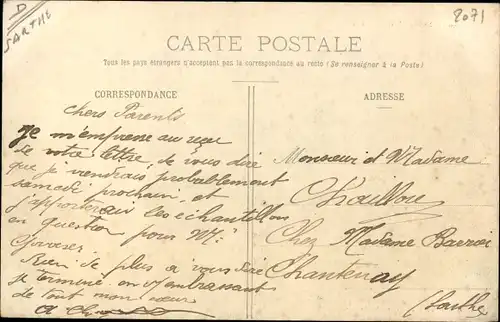 D
SARTHE
2071
CARTE POSTALE
Tous les pays étrangers n'acceptent pas la correspondance au recto (Se renseigner à la Poste)
CORRESPONDANCE
Chers Parents
Je m'empresse au reçu
de votre lettre, de vous dire
que je viendrais probablement
samedi prochain et
j'apporterai les échantillons
en question pour Mr
Rien de plus à vous dire
je termine en vs embrassant
de tout mon cœur
ADRESSE
Monsieur et Madame
Chaillou
Chez Madame
Chantenay
(Sarthe)